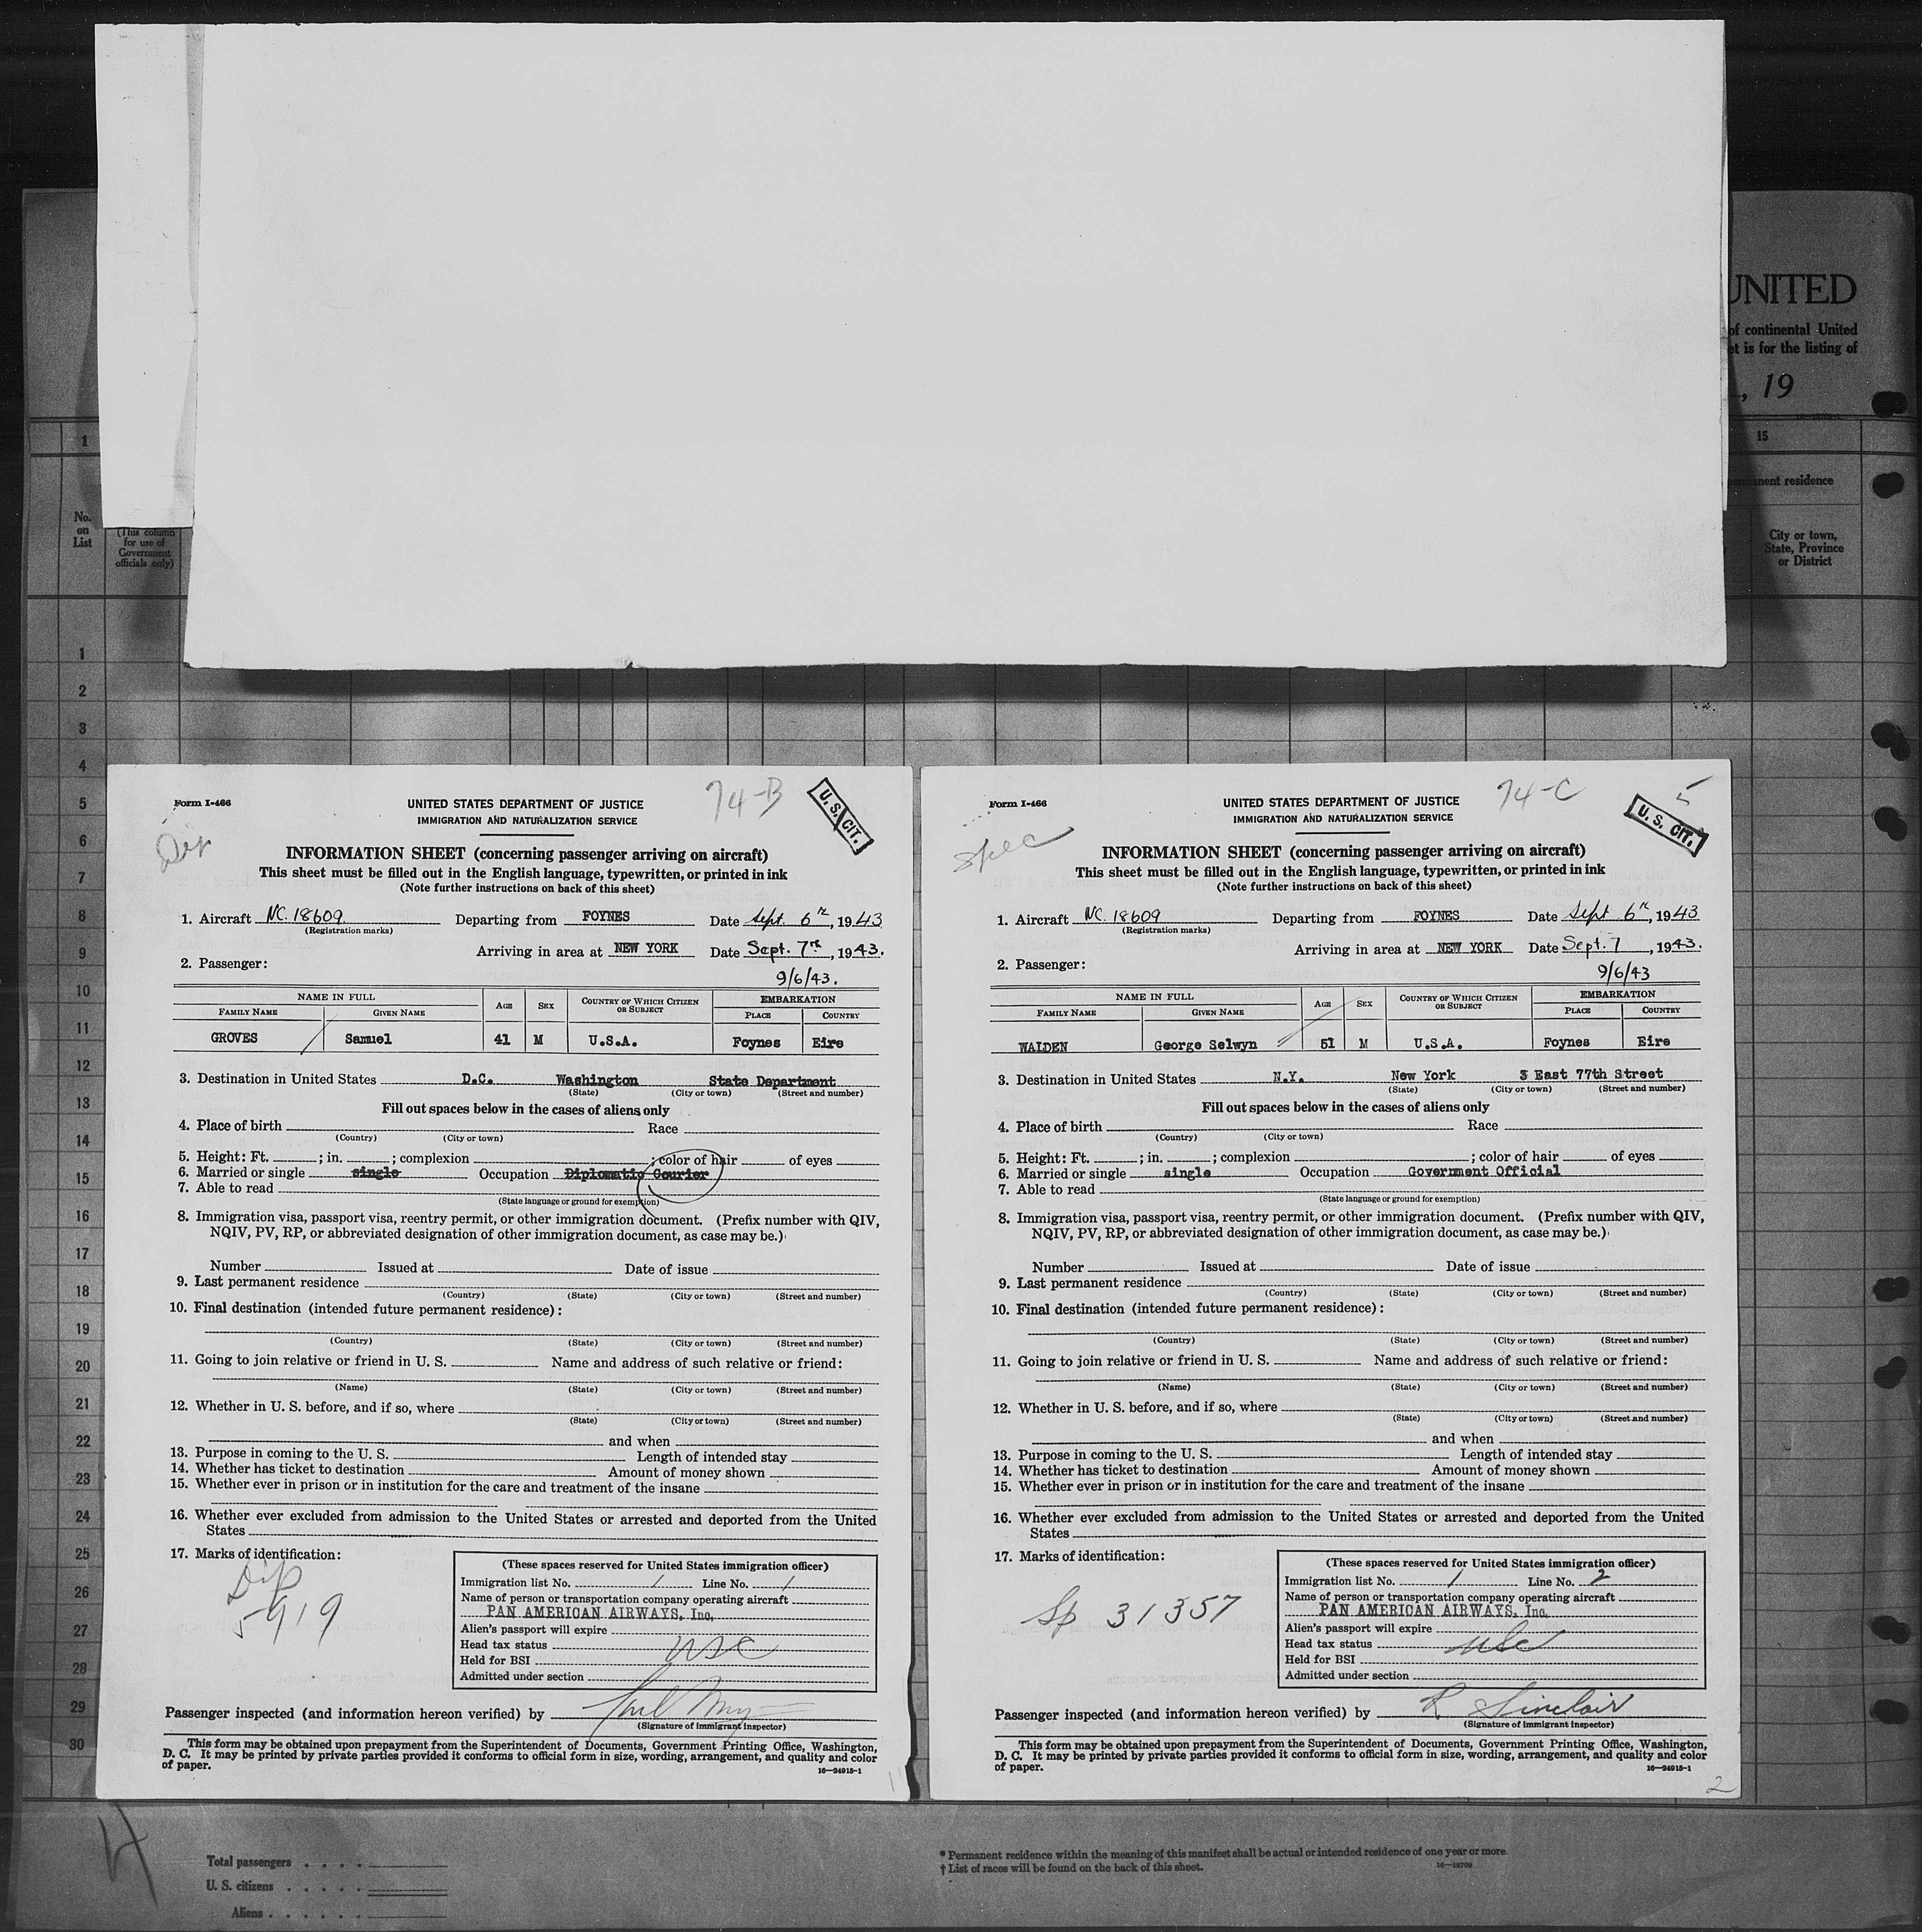 UNITED
of continental United
et is for the listing of
, 19
1
15
permanent residence
No.
on
List
(This column
for use of
Government
officials only)
City or town,
State, Province
or District
1
2
3
4
5
6
7
8
9
10
11
12
13
14
15
16
17
18
19
20
21
22
23
24
25
26
27
28
29
30
Form I-466
UNITED STATES DEPARTMENT OF JUSTICE
IMMIGRATION AND NATURALIZATION SERVICE
74-B
U.S. CIT.
Dip
INFORMATION SHEET (concerning passenger arriving on aircraft)
This sheet must be filled out in the English language, typewritten, or printed in ink
(Note further instructions on back of this sheet)
1. Aircraft NC. 18609 Departing from FOYNES Date Sept. 6th, 1943
(Registration marks)
Arriving in area at NEW YORK Date Sept. 7th, 1943.
2. Passenger:
9/6/43.
NAME IN FULL AGE SEX COUNTRY OF WHICH CITIZEN OR SUBJECT EMBARKATION
FAMILY NAME GIVEN NAME PLACE COUNTRY
GROVES Samuel 41 M U.S.A. Foynes Eire
3. Destination in United States D.C. Washington State Department
(State) (City or town) (Street and number)
Fill out spaces below in the cases of aliens only
4. Place of birth Race
(Country) (City or town)
5. Height: Ft. ; in. ; complexion ; color of hair of eyes
6. Married or single single Occupation Diplomatic Courier
7. Able to read
(State language or ground for exemption)
8. Immigration visa, passport visa, reentry permit, or other immigration document. (Prefix number with QIV,
NQIV, PV, RP, or abbreviated designation of other immigration document, as case may be.)
Number Issued at Date of issue
9. Last permanent residence
(Country) (State) (City or town) (Street and number)
10. Final destination (intended future permanent residence):
(Country) (State) (City or town) (Street and number)
11. Going to join relative or friend in U. S. Name and address of such relative or friend:
(Name) (State) (City or town) (Street and number)
12. Whether in U. S. before, and if so, where
(State) (City or town) (Street and number)
and when
13. Purpose in coming to the U. S. Length of intended stay
14. Whether has ticket to destination Amount of money shown
15. Whether ever in prison or in institution for the care and treatment of the insane
16. Whether ever excluded from admission to the United States or arrested and deported from the United
States
17. Marks of identification:
Dip
5919
(These spaces reserved for United States immigration officer)
Immigration list No. 1 Line No. 1
Name of person or transportation company operating aircraft
PAN AMERICAN AIRWAYS, Inc.
Alien's passport will expire
Head tax status USC
Held for BSI
Admitted under section
Passenger inspected (and information hereon verified) by
(Signature of immigrant inspector)
This form may be obtained upon prepayment from the Superintendent of Documents, Government Printing Office, Washington,
D. C. It may be printed by private parties provided it conforms to official form in size, wording, arrangement, and quality and color
of paper.
16—24915-1
1
Form I-466
UNITED STATES DEPARTMENT OF JUSTICE
IMMIGRATION AND NATURALIZATION SERVICE
74-C
5
U. S. CIT.
Spec
INFORMATION SHEET (concerning passenger arriving on aircraft)
This sheet must be filled out in the English language, typewritten, or printed in ink
(Note further instructions on back of this sheet)
1. Aircraft NC. 18609 Departing from FOYNES Date Sept 6th, 1943
(Registration marks)
Arriving in area at NEW YORK Date Sept. 7, 1943.
2. Passenger:
9/6/43
NAME IN FULL AGE SEX COUNTRY OF WHICH CITIZEN OR SUBJECT EMBARKATION
FAMILY NAME GIVEN NAME PLACE COUNTRY
WALDEN George Selwyn 51 M U.S.A. Foynes Eire
3. Destination in United States N.Y. New York 3 East 77th Street
(State) (City or town) (Street and number)
Fill out spaces below in the cases of aliens only
4. Place of birth Race
(Country) (City or town)
5. Height: Ft. ; in. ; complexion ; color of hair of eyes
6. Married or single single Occupation Government Official
7. Able to read
(State language or ground for exemption)
8. Immigration visa, passport visa, reentry permit, or other immigration document. (Prefix number with QIV,
NQIV, PV, RP, or abbreviated designation of other immigration document, as case may be.)
Number Issued at Date of issue
9. Last permanent residence
(Country) (State) (City or town) (Street and number)
10. Final destination (intended future permanent residence):
(Country) (State) (City or town) (Street and number)
11. Going to join relative or friend in U. S. Name and address of such relative or friend:
(Name) (State) (City or town) (Street and number)
12. Whether in U. S. before, and if so, where
(State) (City or town) (Street and number)
and when
13. Purpose in coming to the U. S. Length of intended stay
14. Whether has ticket to destination Amount of money shown
15. Whether ever in prison or in institution for the care and treatment of the insane
16. Whether ever excluded from admission to the United States or arrested and deported from the United
States
17. Marks of identification:
Sp 31357
(These spaces reserved for United States immigration officer)
Immigration list No. 1 Line No. 2
Name of person or transportation company operating aircraft
PAN AMERICAN AIRWAYS, Inc.
Alien's passport will expire
Head tax status usc
Held for BSI
Admitted under section
Passenger inspected (and information hereon verified) by R Sinclair
(Signature of immigrant inspector)
This form may be obtained upon prepayment from the Superintendent of Documents, Government Printing Office, Washington,
D. C. It may be printed by private parties provided it conforms to official form in size, wording, arrangement, and quality and color
of paper.
16—24915-1
2
4
Total passengers
U. S. citizens
Aliens
* Permanent residence within the meaning of this manifest shall be actual or intended residence of one year or more.
† List of races will be found on the back of this sheet.
16—18709